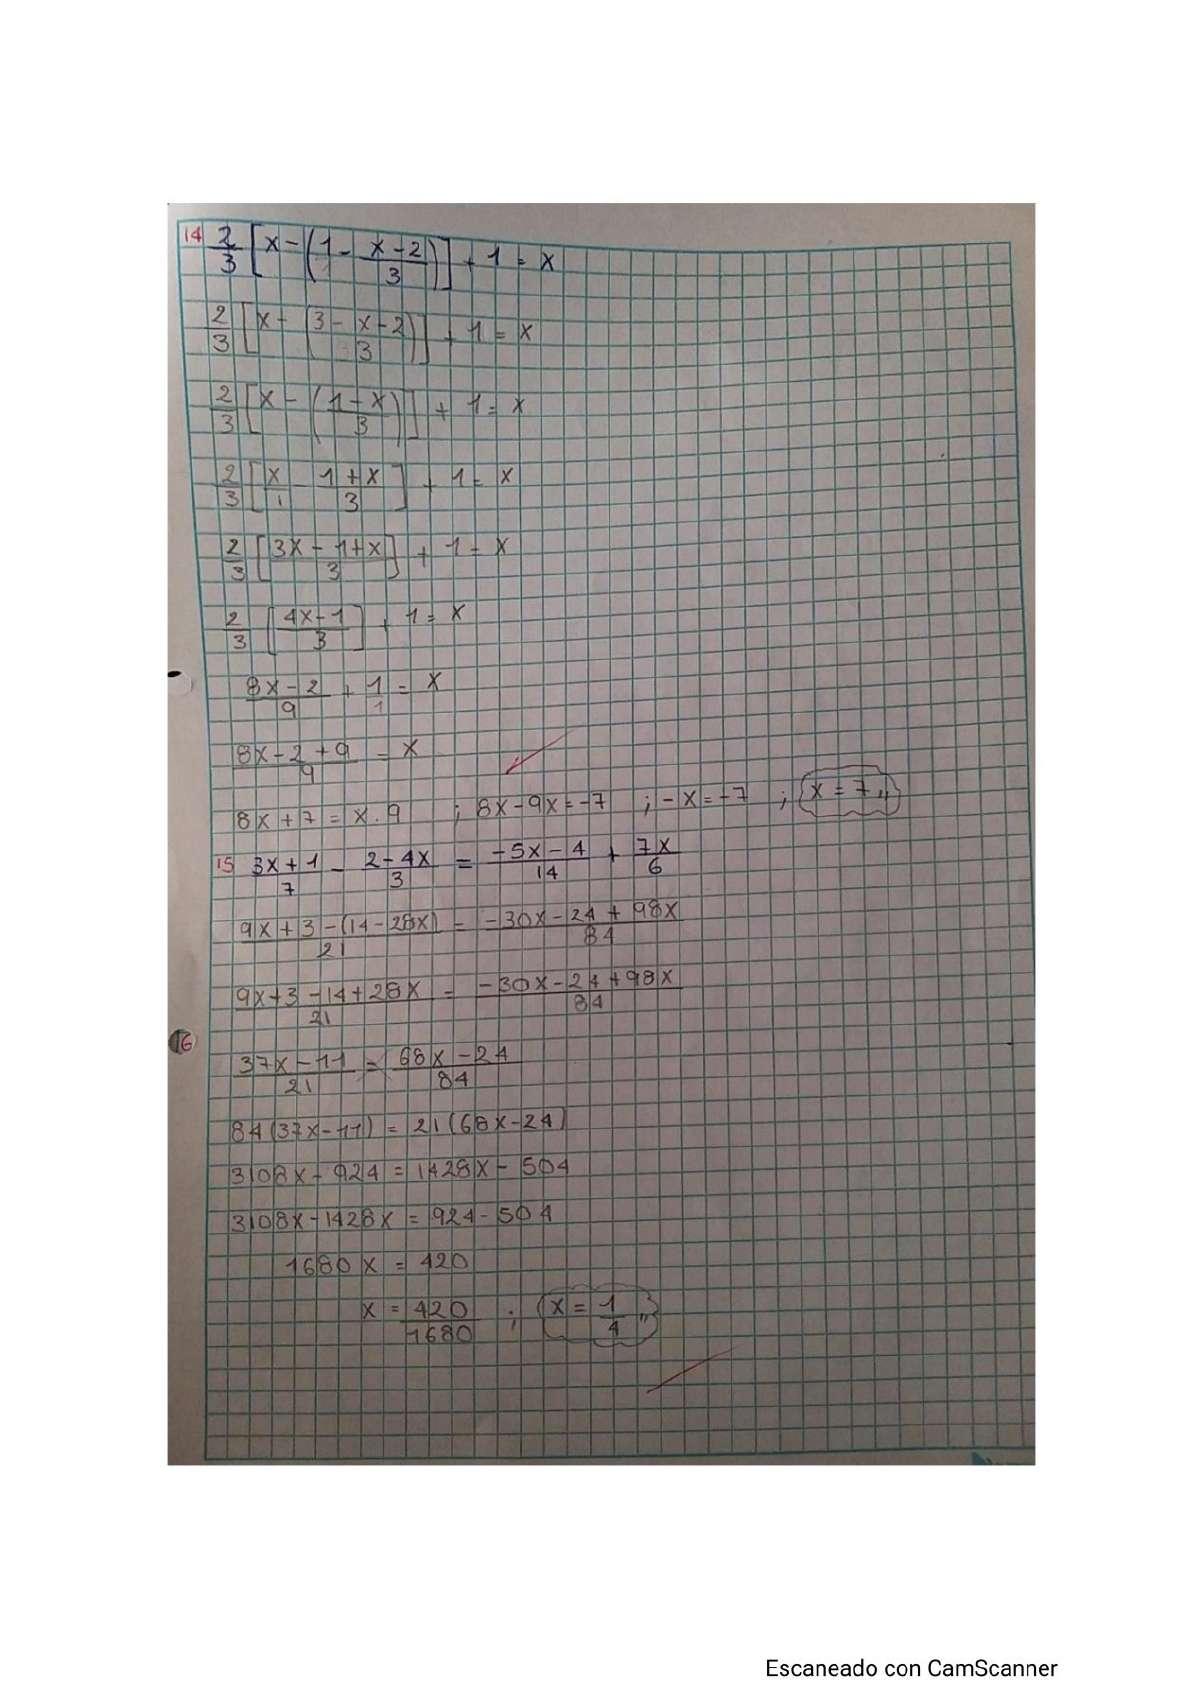 14 2/3 [x - (1 - x-2/3)] + 1 = x
2/3 [x - (3-x-2/3)] + 1 = x
2/3 [x - (1-x/3)] + 1 = x
2/3 [x/1 - 1+x/3] + 1 = x
2/3 [3x-1+x/3] + 1 = x
2/3 [4x-1/3] + 1 = x
8x-2/9 + 1/1 = x
8x-2+9/9 = x
8x+7 = x.9 ; 8x-9x=-7 ; -x=-7 ; x=7,,
15 3x+1/7 - 2-4x/3 = -5x-4/14 + 7x/6
9x+3-(14-28x)/21 = -30x-24+98x/84
9x+3-14+28x/21 = -30x-24+98x/84
16
37x-11/21 = 68x-24/84
84(37x-11) = 21(68x-24)
3108x-924 = 1428x-504
3108x-1428x = 924-504
1680x = 420
x = 420/1680 ; x = 1/4,,
Escaneado con CamScanner